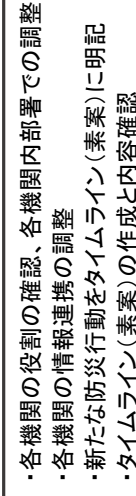 ・各機関の役割の確認、各機関内部署での調整
・各機関の情報連携の調整
・新たな防災行動をタイムライン(素案)に明記
・タイムライン(素案)の作成と内容確認